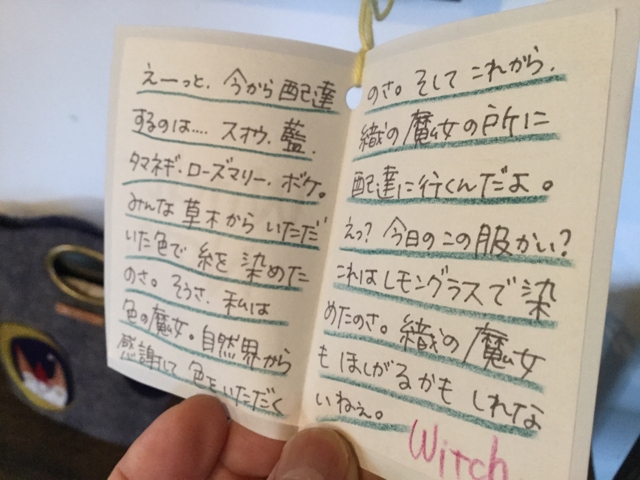 えーっと、今から配達
するのは…. スオウ、藍、
タマネギ、ローズマリー、ボケ。
みんな草木からいただ
いた色で糸を染めた
のさ。そうさ、私は
色の魔女。自然界から
感謝して色をいただく
のさ。そしてこれから、
織の魔女の所に
配達に行くんだよ。
えっ?今日のこの服かい?
これはレモングラスで染
めたのさ。織の魔女
もほしがるかもしれな
いねぇ。
Witch